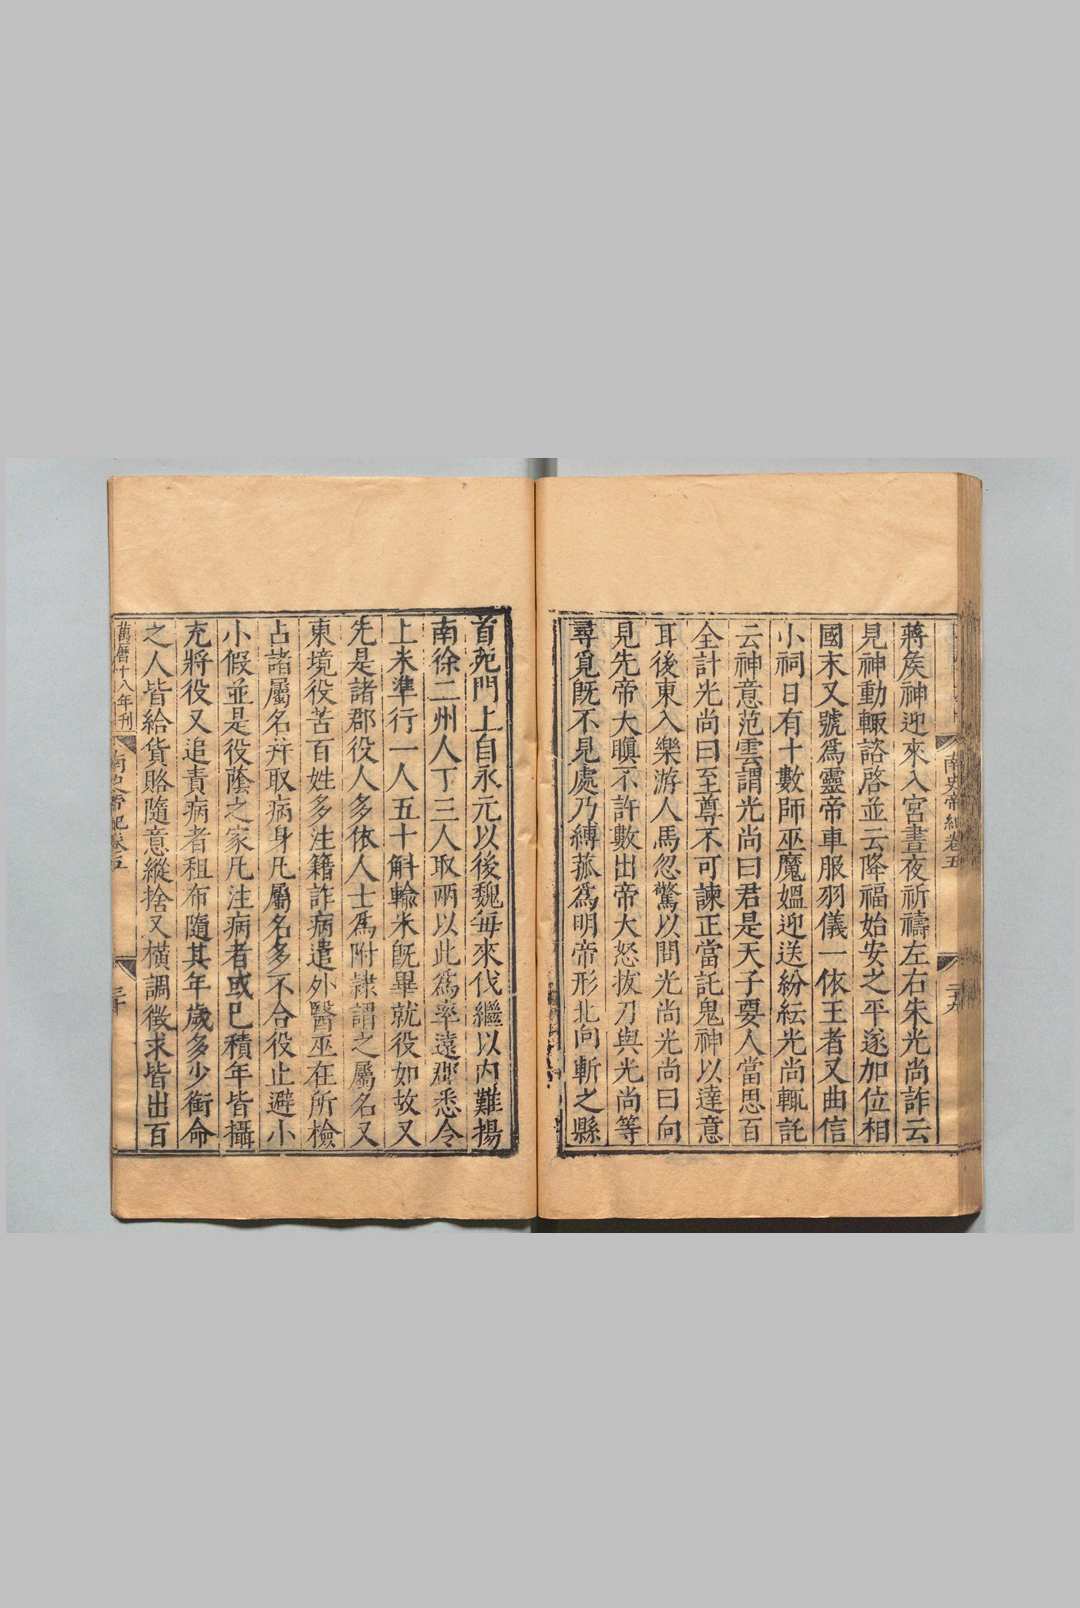 南史帝紀卷五
二十九
蔣矦神迎來入宮晝夜祈禱左右朱光尚詐云
見神動輙諮啓並云降福始安之平遂加位相
國末又號爲靈帝車服羽儀一依王者又曲信
小祠日有十數師巫魔媼迎送紛紜光尚輒託
云神意范雲謂光尚曰君是天子要人當思百
全計光尚曰至尊不可諫正當託鬼神以達意
耳後東入樂游人馬忽驚以問光尚光尚曰向
見先帝大瞋不許數出帝大怒拔刀與光尚等
尋覓旣不見處乃縛菰爲明帝形北向斬之縣
首苑門上自永元以後魏每來伐繼以內難揚
南徐二州人丁三人取兩以此爲率遠郡悉令
上米準行一人五十斛輸米旣畢就役如故又
先是諸郡役人多依人士爲附隷謂之屬名又
東境役苦百姓多注籍詐病遣外醫巫在所檢
占諸屬名幷取病身凡屬名多不合役止避小
小假並是役蔭之家凡注病者或已積年皆攝
充將役又追責病者租布隨其年歲多少銜命
之人皆給貨賂隨意縱捨又橫調徵求皆出百
萬曆十八年刊
南史帝紀卷五
三十